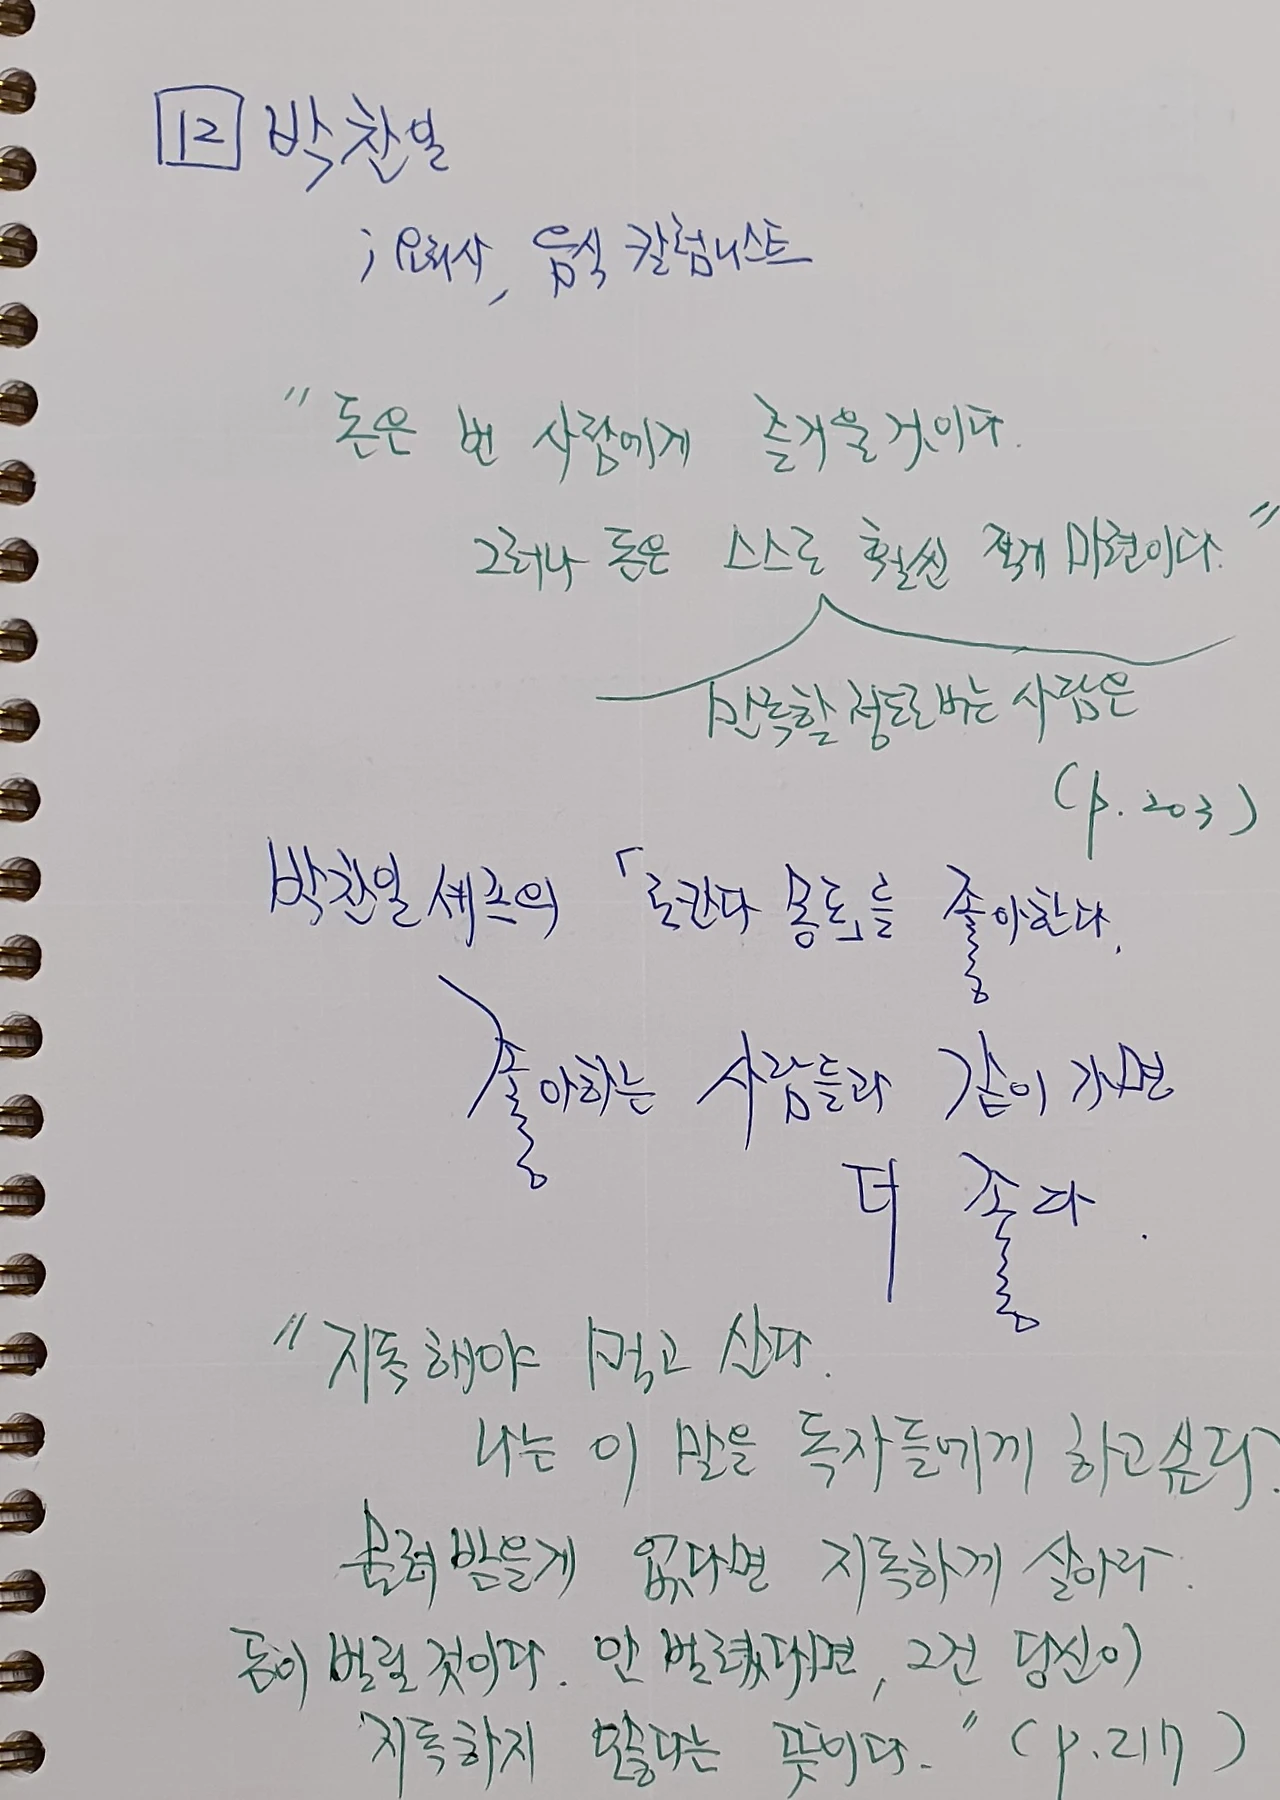 12 박찬일
; 요리사, 음식 칼럼니스트
"돈은 번 사람에게 즐거울 것이다.
그러나 돈은 스스로 훨씬 적게 마련이다."
만족할 정도로 버는 사람은
(p.203)
박찬일 셰프의 「로칸다 몽로」를 좋아한다.
좋아하는 사람들과 같이 가면
더 좋다.
"지독해야 먹고 산다.
나는 이 말을 독자들에게 하고 싶다.
물려받을게 없다면 지독하게 살아라.
돈이 벌릴 것이다. 안 벌려졌다면, 그건 당신이
지독하지 않다는 뜻이다." (p.217)